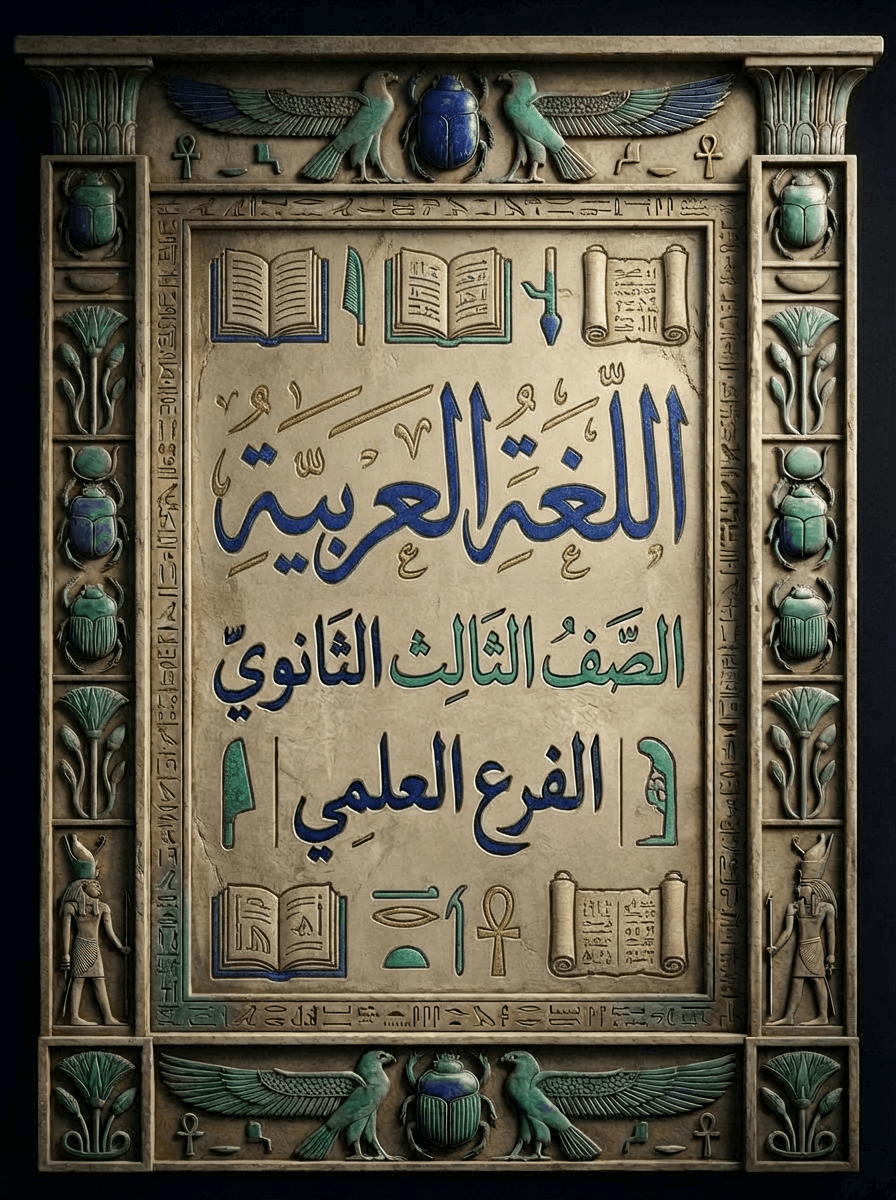 اللُّغَةُ العَرَبِيَّةُ
الصَّفُ الثَالِث الثَانوِيّ
الفرع العلمِي